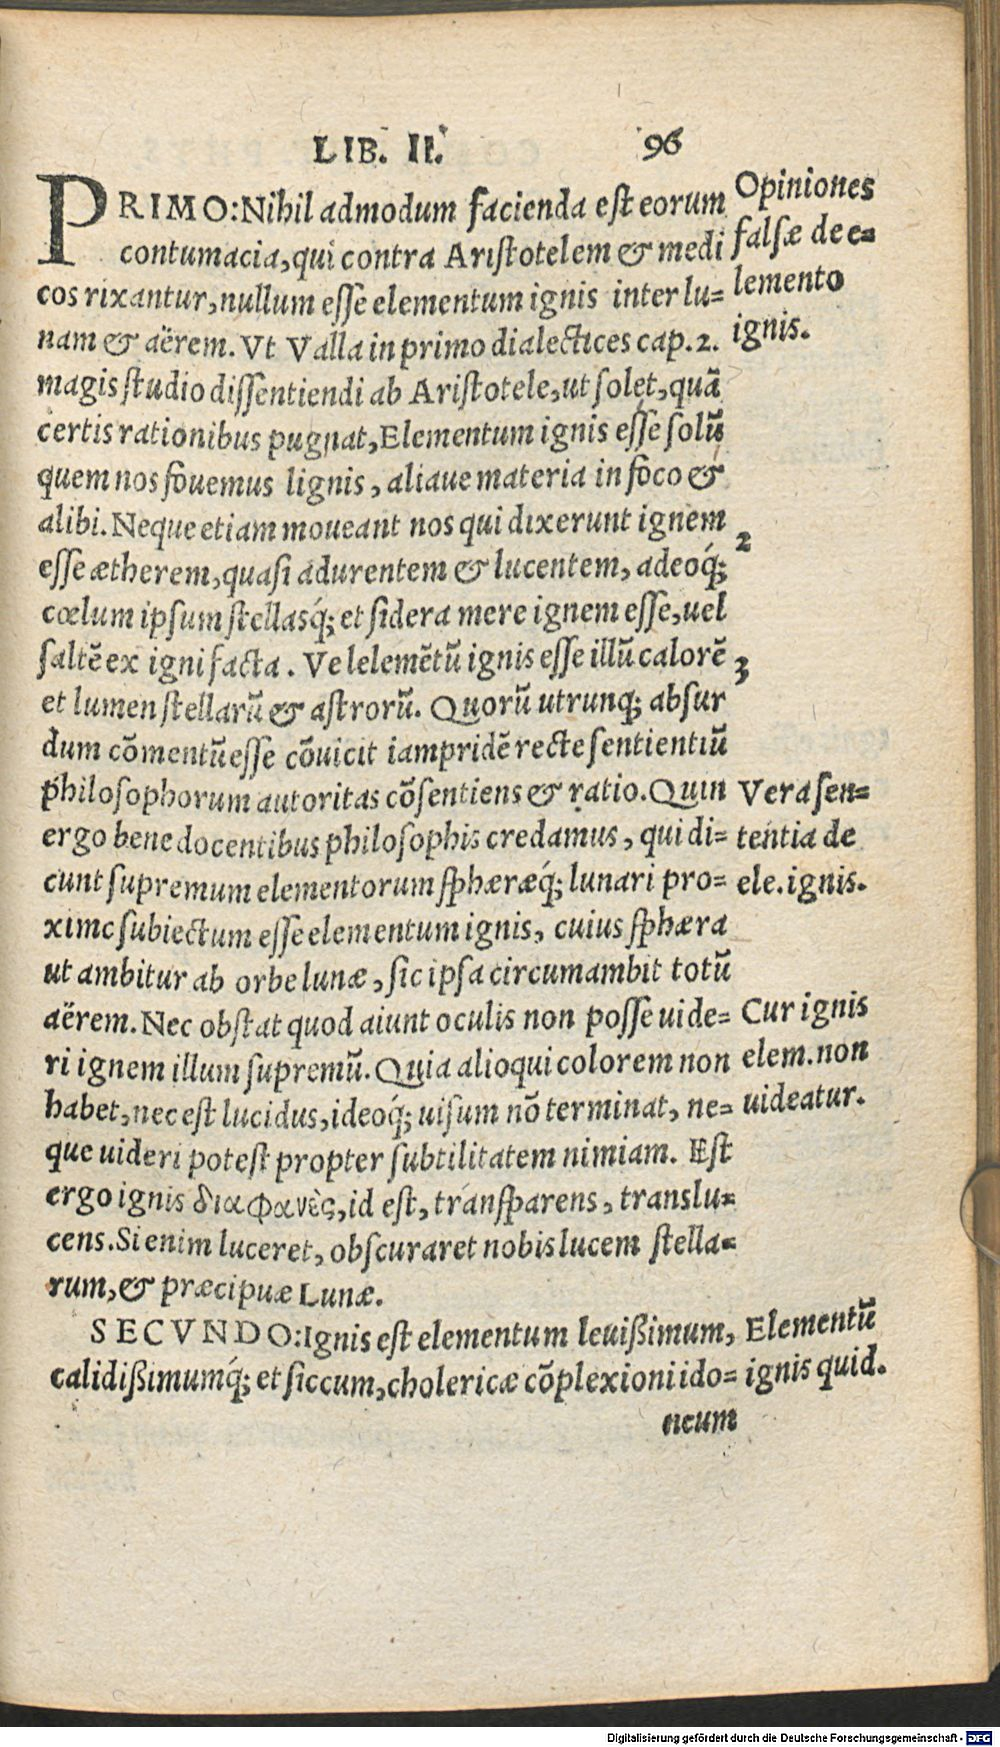 LIB. II. 96
PRIMO: Nihil admodum facienda est eorum
contumacia, qui contra Aristotelem & medi
cos rixantur, nullum esse elementum ignis inter lu=
nam & aërem. Vt Valla in primo dialectices cap. 2.
magis studio dissentiendi ab Aristotele, ut solet, quã
certis rationibus pugnat, Elementum ignis esse solũ
quem nos fouemus lignis, aliaue materia in foco &
alibi. Neque etiam moueant nos qui dixerunt ignem
esse ætherem, quasi adurentem & lucentem, adeoq́;
cœlum ipsum stellasq́; et sidera mere ignem esse, uel
saltẽ ex igni facta. Vel elemẽtũ ignis esse illũ calorẽ
et lumen stellarũ & astrorũ. Quorũ utrunq; absur
dum cõmentũ esse cõuicit iampridẽ recte sentientiũ
philosophorum autoritas cõsentiens & ratio. Quin
ergo bene docentibus philosophis credamus, qui di=
cunt supremum elementorum sphæræq́; lunari pro=
xime subiectum esse elementum ignis, cuius sphæra
ut ambitur ab orbe lunæ, sic ipsa circumambit totũ
aërem. Nec obstat quod aiunt oculis non posse uide=
ri ignem illum supremũ. Quia alioqui colorem non
habet, nec est lucidus, ideoq́; uisum nõ terminat, ne=
que uideri potest propter subtilitatem nimiam. Est
ergo ignis διαφανὲς, id est, transparens, translu=
cens. Si enim luceret, obscuraret nobis lucem stella=
rum, & præcipuæ Lunæ.
SECVNDO: Ignis est elementum leuißimum,
calidißimumq́; et siccum, cholericæ cõplexioni ido=
neum
Opiniones
falsæ de e=
lemento
ignis.
2
3
Vera sen=
tentia de
ele. ignis.
Cur ignis
elem. non
uideatur.
Elementũ
ignis quid.
Digitalisierung gefördert durch die Deutsche Forschungsgemeinschaft - DFG